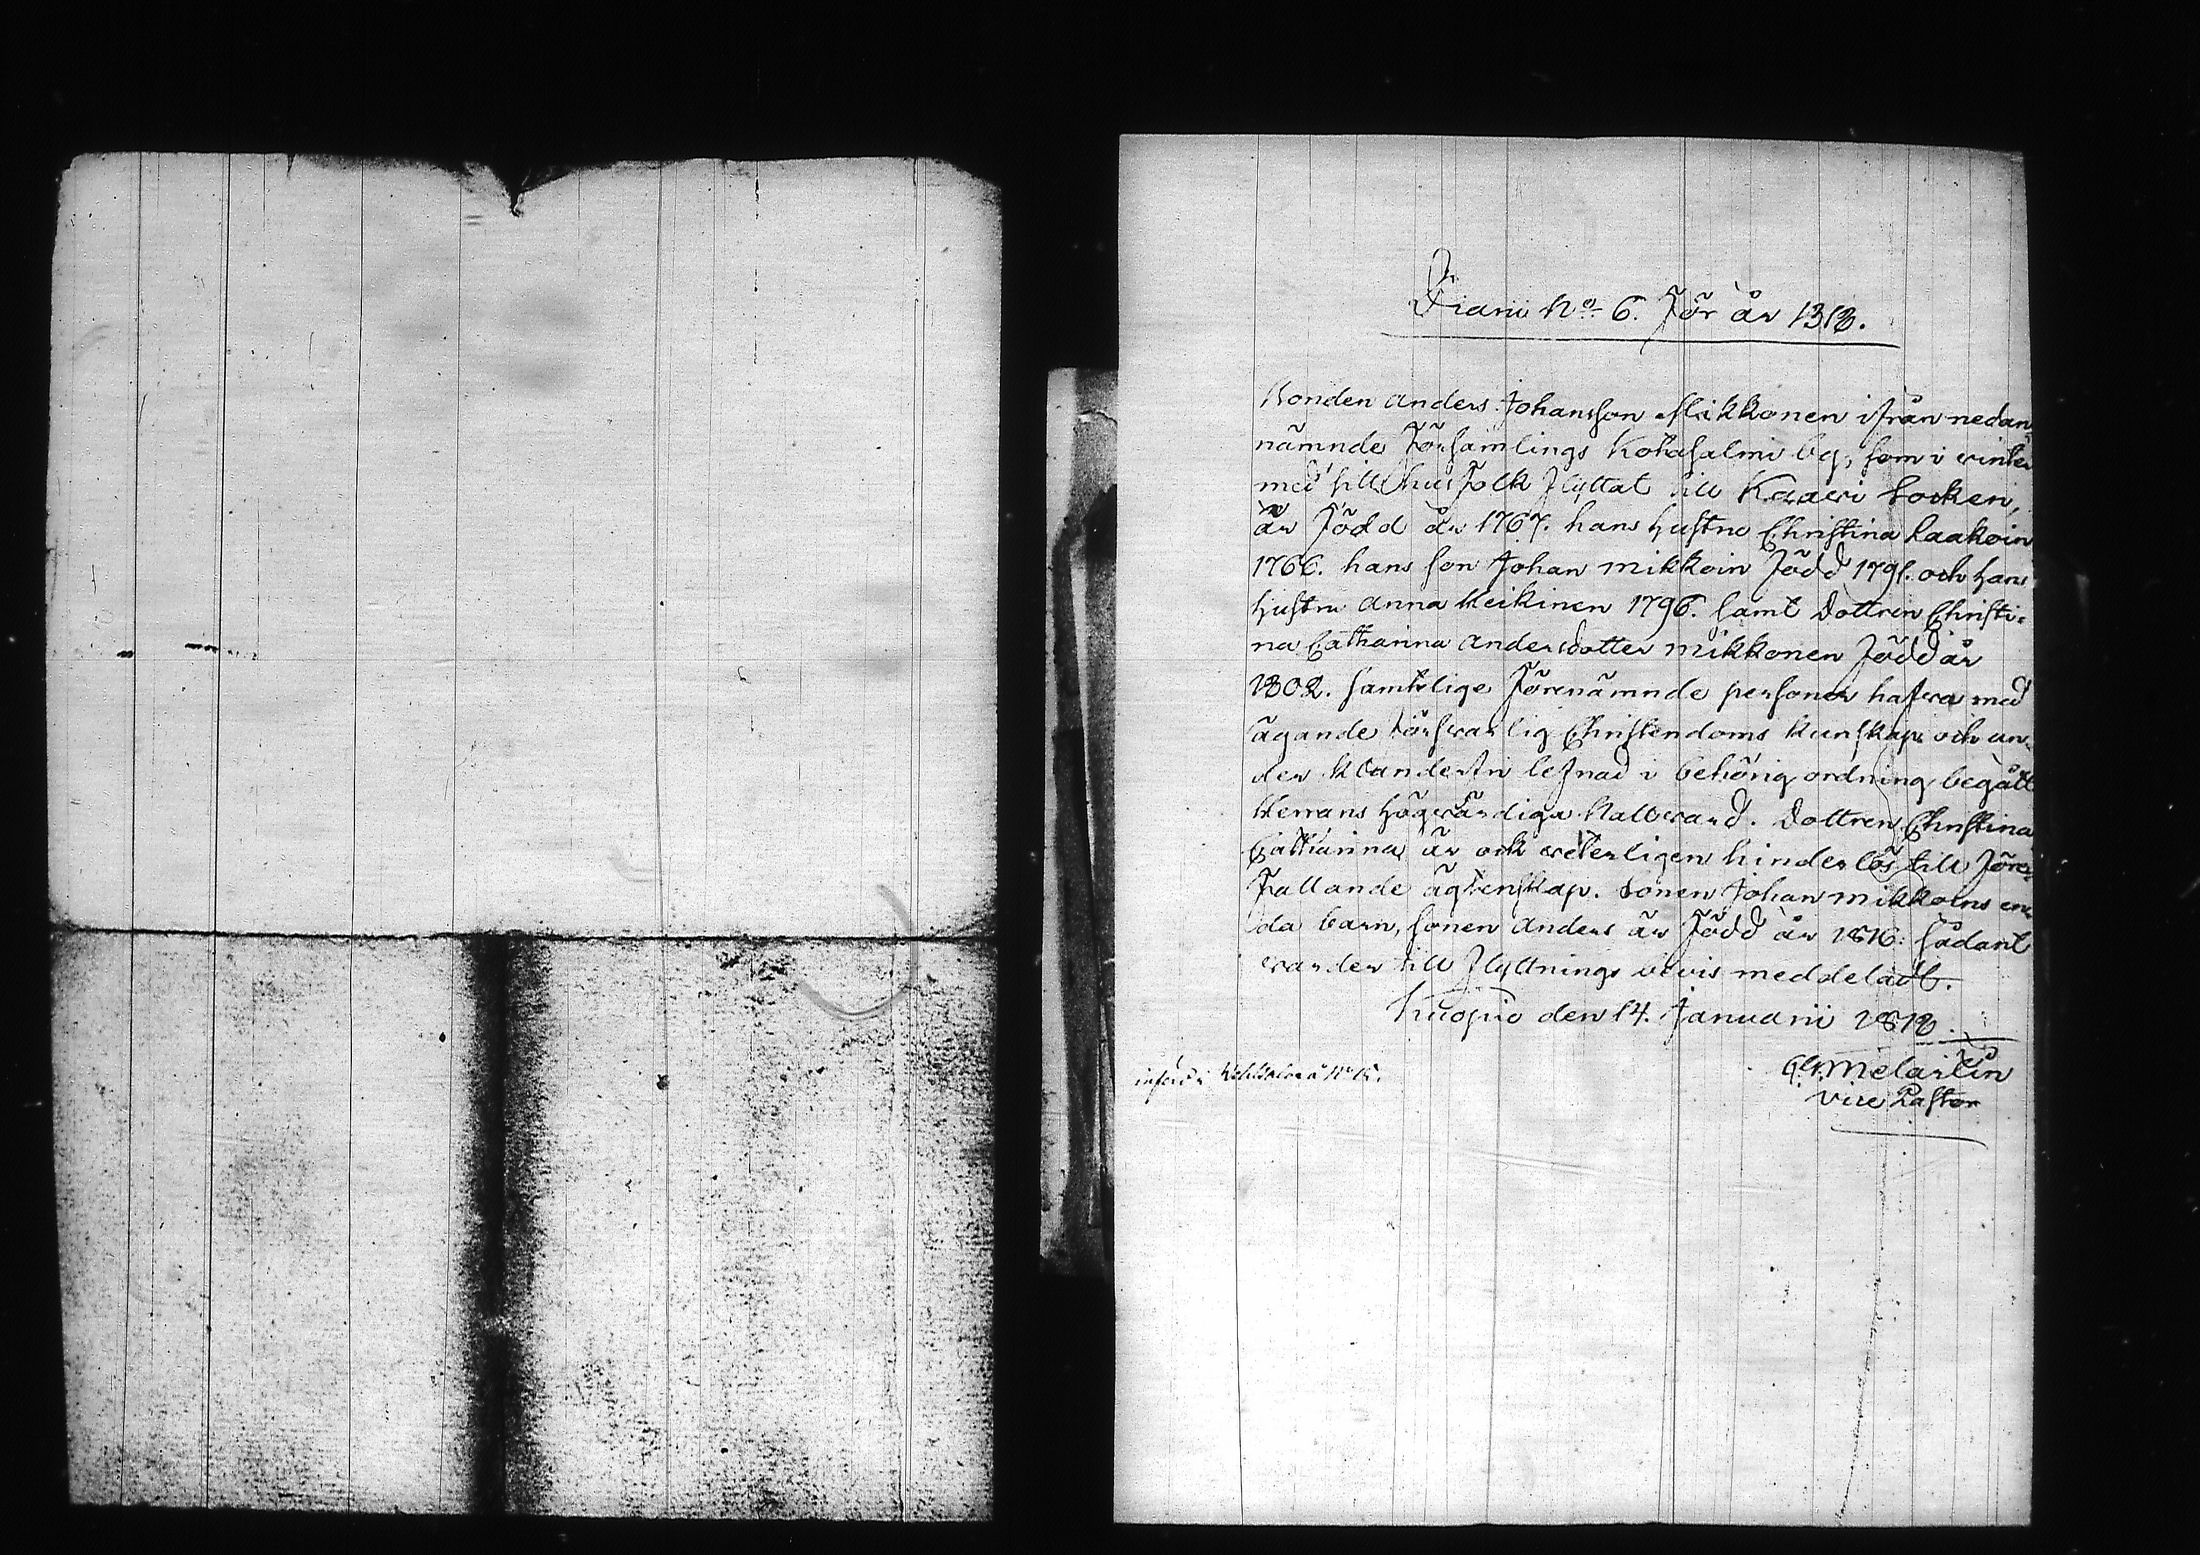 Diarii No 6. för år 1818.
Bonden Anders Johansson Mikkonen ifrån nedan
nämnde Församlings Kotasalmi by, som i winter
med sitt husfolk flyttat till Kaawi Socken,
är född år 1767. hans hustru Christina Laakoin
1766. hans son Johan Mikkoin född 1795. och hans
hustru Anna Heikinen 1796. samt Dottren Christi-
na Catharina Andersdotter Mikkonen född år
1802. samtelige förenämnde personer hafwa med
ägande förswarlig Christendoms kunskap och un-
der klanderfri lefnad i behörig ordning begått
Herrans högwärdiga Nattward. Dottren Christina
Catharina är ock weterligen hinderlös till före-
fallande ägtenskap. Sonen Johan Mikkoins en-
da barn, sonen Anders är född år 1816. sådant
warder till flyttnings bevis meddeladt.
Kuopio den 14. Januarii 1818.
Melartin
Vice Pastor
införd i No 15.